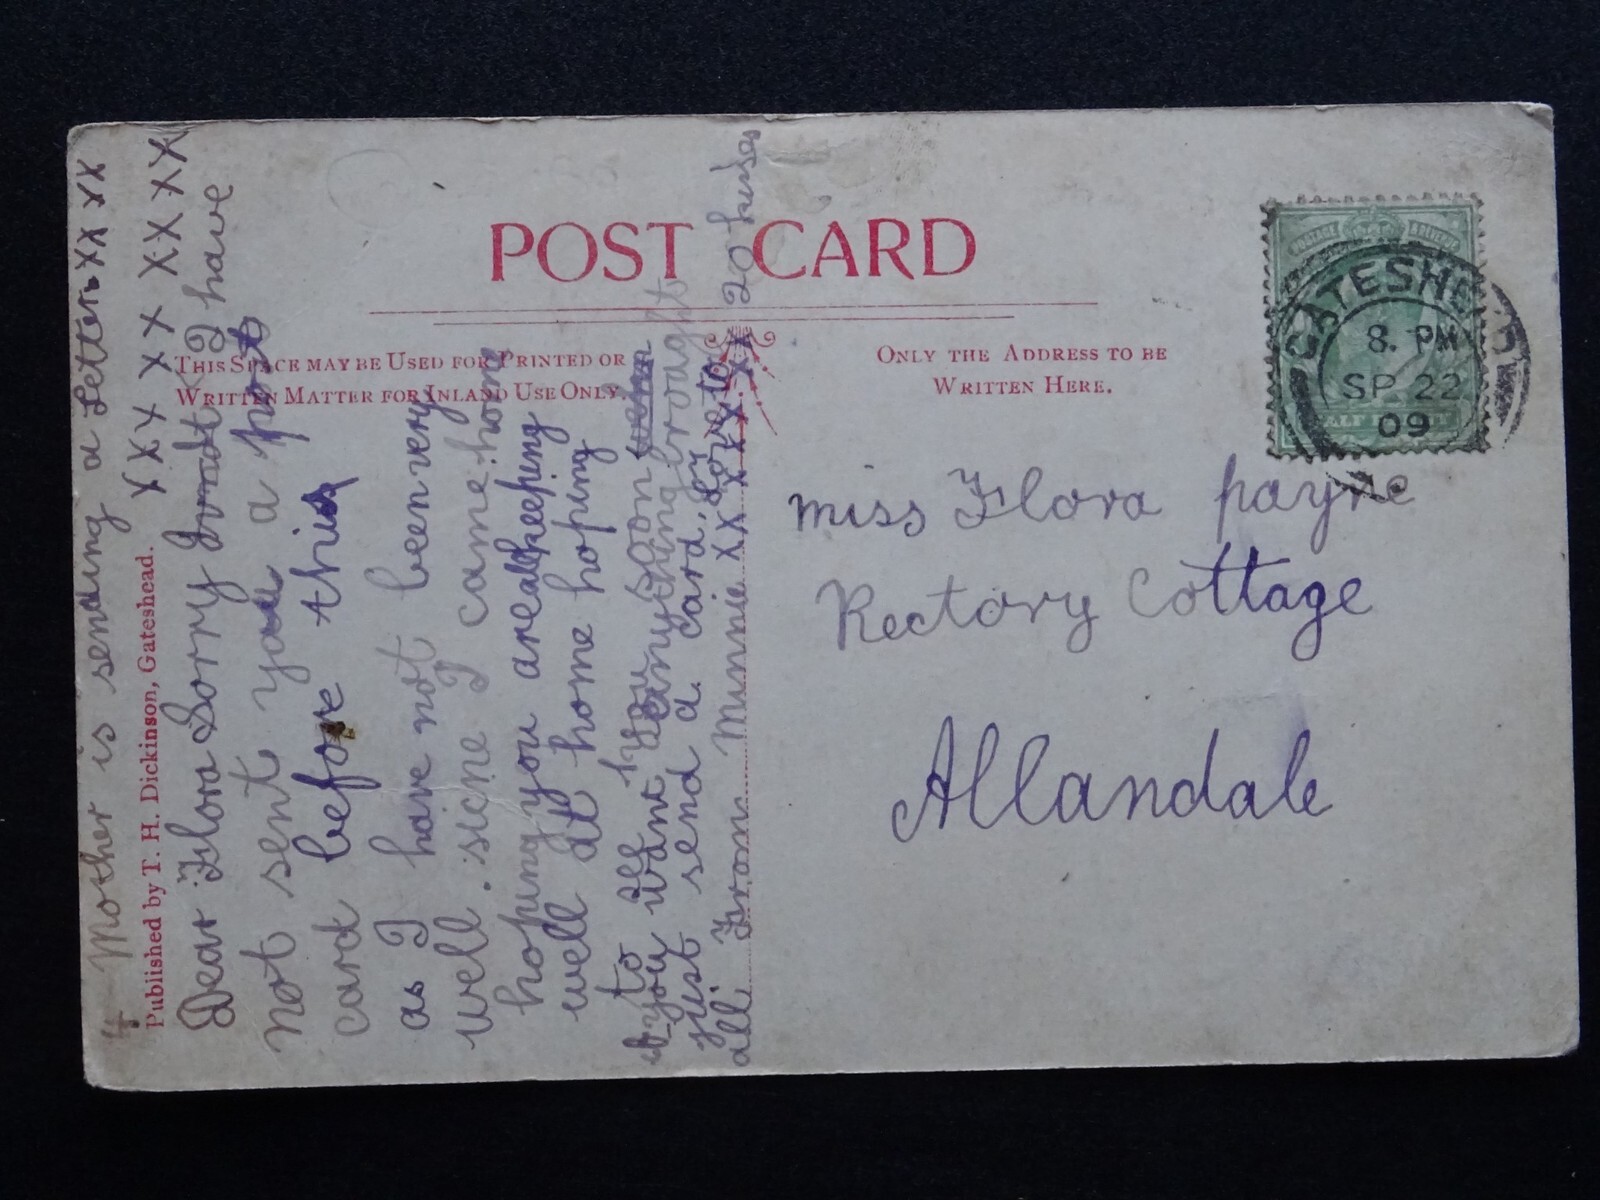 POST CARD
THIS SPACE MAY BE USED FOR PRINTED OR
WRITTEN MATTER FOR INLAND USE ONLY.
ONLY THE ADDRESS TO BE
WRITTEN HERE.
POSTAGE & REVENUE
GATESHEAD
8. PM
SP 22
09
miss Flora payne
Rectory Cottage
Allandale
Mother is sending a Letter xx xx
xxx xx xx xx xx
Published by T. H. Dickinson, Gateshead.
Dear Flora Sorry I have
not sent you a post
card before this
as I have not been very
well. sicne I came home
hoping you are all keeping
well at home hoping
to you soon
if you want anything brought
just send a card, love to
all. From Minnie xx xx xx xx 20 kisses